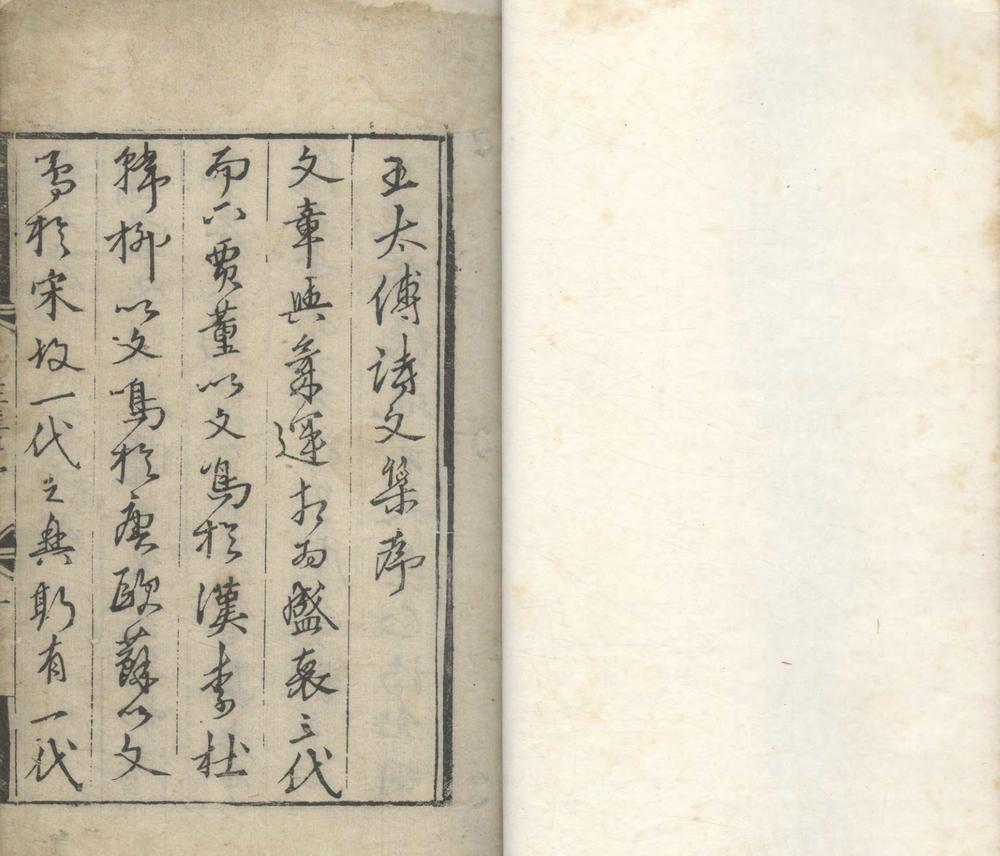 王太傅詩文集序
文章與氣運相為盛衰三代
而下賈董以文鳴於漢李杜
韓柳以文鳴於唐歐蘇以文
鳴於宋故一代之興斯有一代